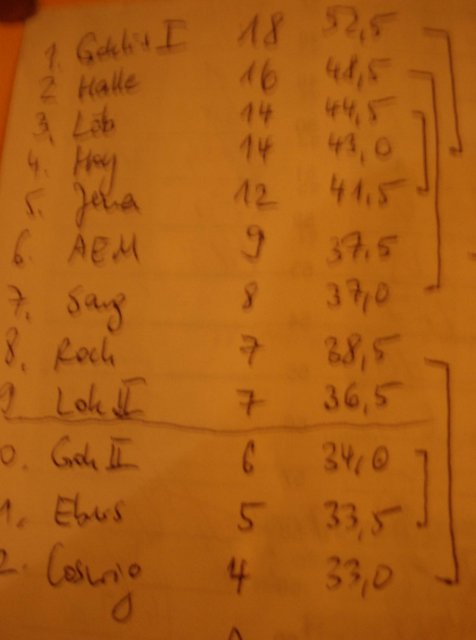 1. I 18 52,5
2 Halle 16 48,5
3. Löb 14 44,5
4. Hoy 14 43,0
5. Jena 12 41,5
6. AEM 9 37,5
7. Sang 8 37,0
8. Roch 7 38,5
9 Lok II 7 36,5
0. II 6 34,0
1. 5 33,5
2. Coswig 4 33,0